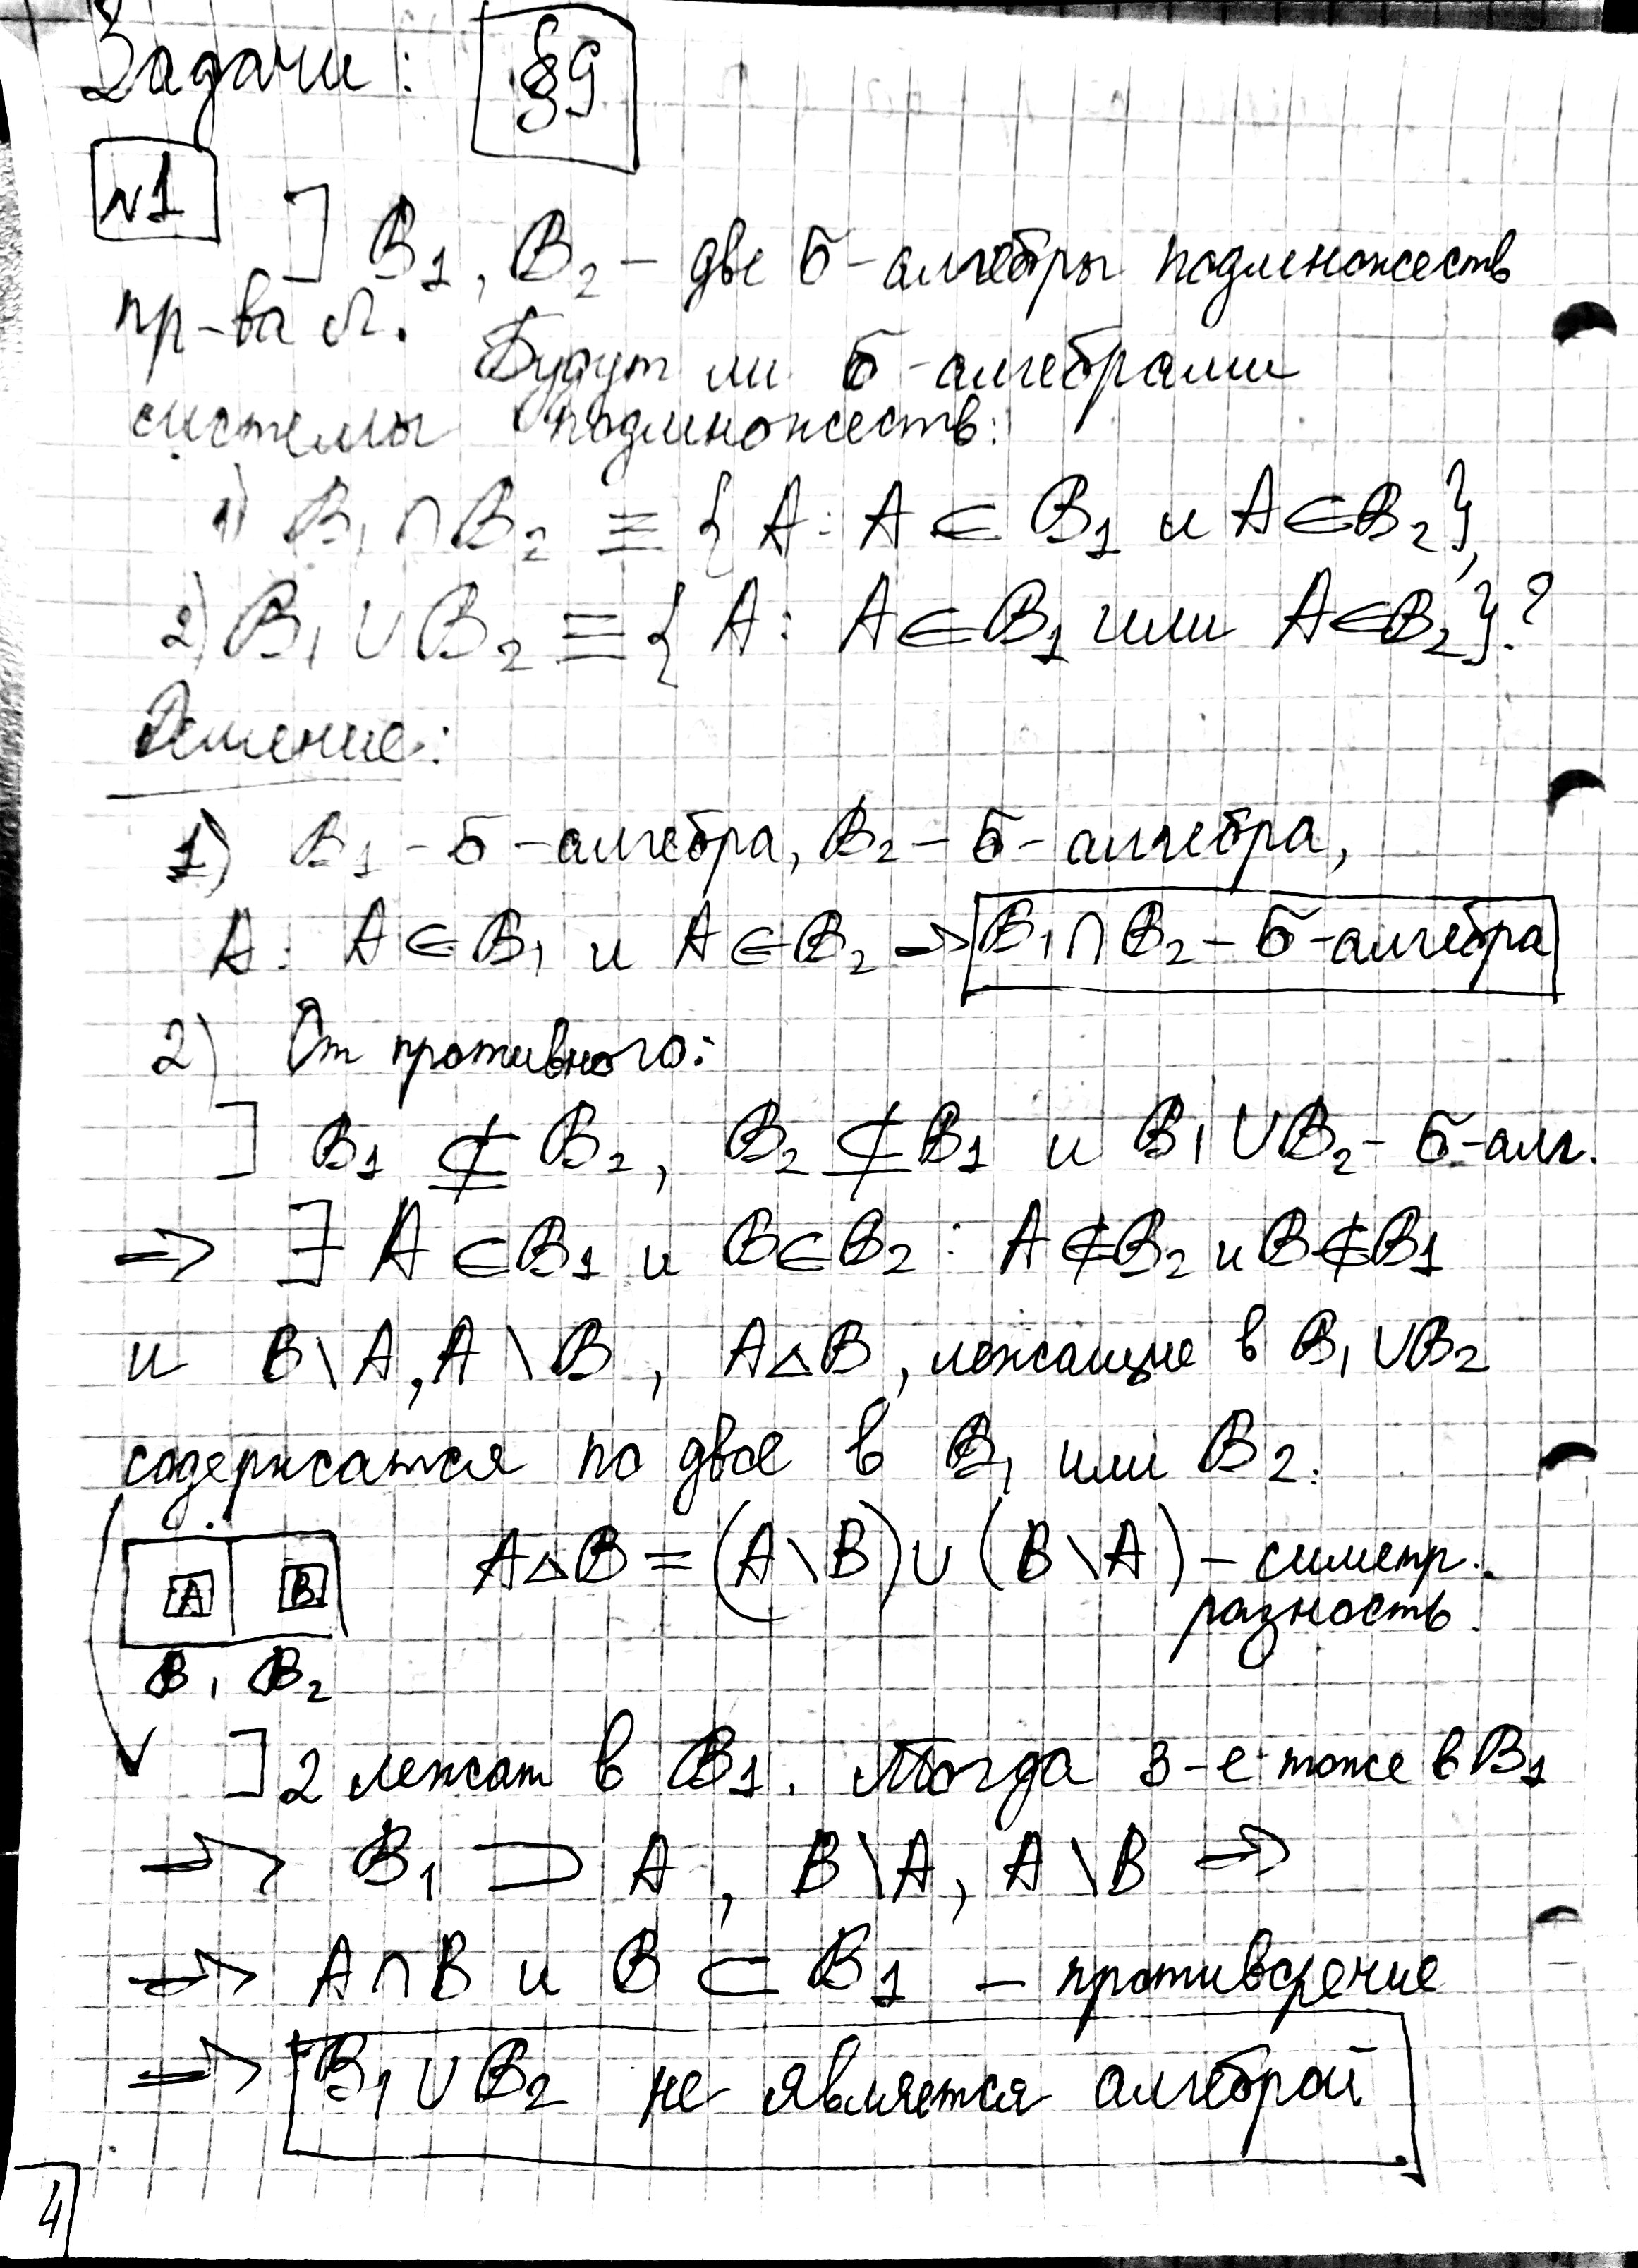 Задачи: §9
№1
] B₁, B₂ – две б-алгебры подмножеств
пр-ва Ω. Будут ли б-алгебрами
системы подмножеств:
1) B₁ ∩ B₂ ≡ { A: A ∈ B₁ и A ∈ B₂ },
2) B₁ ∪ B₂ ≡ { A: A ∈ B₁ или A ∈ B₂ }?
Решение:
1) B₁ – б-алгебра, B₂ – б-алгебра,
A: A ∈ B₁ и A ∈ B₂ → B₁ ∩ B₂ – б-алгебра
2) От противного:
] B₁ ⊈ B₂, B₂ ⊈ B₁ и B₁ ∪ B₂ – б-алг.
⇒ ∃ A ∈ B₁ и B ∈ B₂ : A ∉ B₂ и B ∉ B₁
и B \ A, A \ B, A △ B, лежащие в B₁ ∪ B₂
содержатся по двое в B₁ или B₂.
A △ B = (A \ B) ∪ (B \ A) – симетр.
разность.
A B
B₁ B₂
] 2 лежат в B₁. Тогда 3-е тоже в B₁
⇒ B₁ ⊃ A, B \ A, A \ B ⇒
⇒ A ∩ B и B ⊂ B₁ – противоречие
⇒ B₁ ∪ B₂ не является алгеброй
4